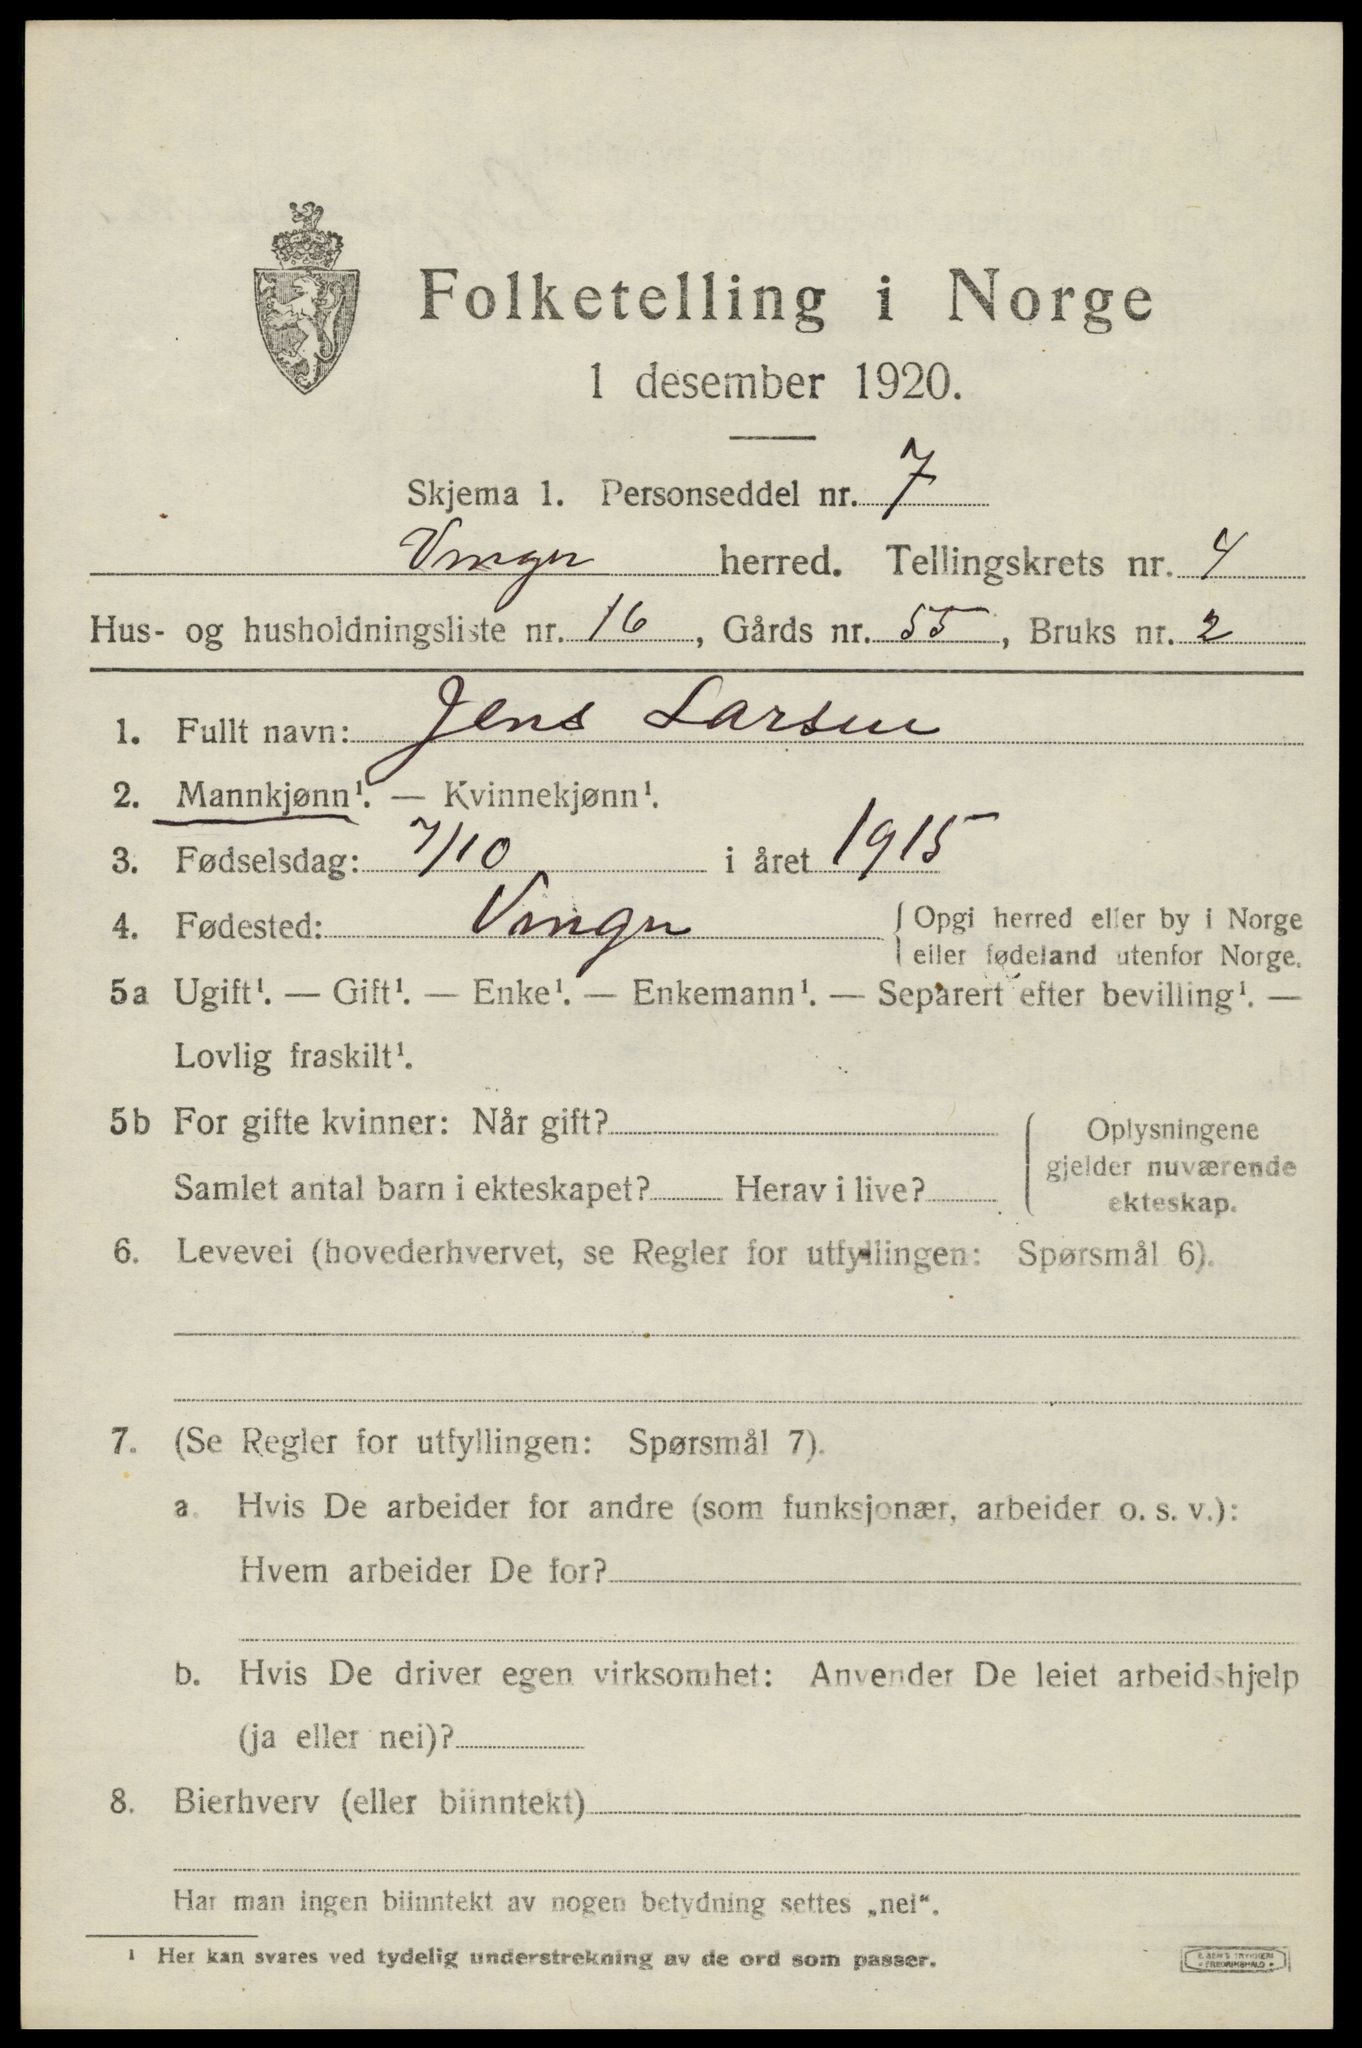 Folketelling i Norge
1 desember 1920.
Skjema 1. Personseddel nr. 7
Vinger herred. Tellingskrets nr. 4
Hus- og husholdningsliste nr. 16, Gårds nr. 55, Bruks nr. 2
1. Fullt navn: Jens Larsen
2. Mannkjønn¹. — Kvinnekjønn¹.
3. Fødselsdag: 7/10 i året 1915
4. Fødested: Vinger { Opgi herred eller by i Norge
eller fødeland utenfor Norge.
5a Ugift¹. — Gift¹. — Enke¹. — Enkemann¹. — Separert efter bevilling¹. —
Lovlig fraskilt¹.
5b For gifte kvinner: Når gift?
Samlet antal barn i ekteskapet? Herav i live?
Oplysningene
gjelder nuværende
ekteskap.
6. Levevei (hovederhvervet, se Regler for utfyllingen: Spørsmål 6).
7. (Se Regler for utfyllingen: Spørsmål 7).
a. Hvis De arbeider for andre (som funksjonær, arbeider o. s. v.):
Hvem arbeider De for?
b. Hvis De driver egen virksomhet: Anvender De leiet arbeidshjelp
(ja eller nei)?
8. Bierhverv (eller biinntekt)
Har man ingen biinntekt av nogen betydning settes „nei“.
¹ Her kan svares ved tydelig understrekning av de ord som passer.
TRYKKERI
FREDRIKSHALD